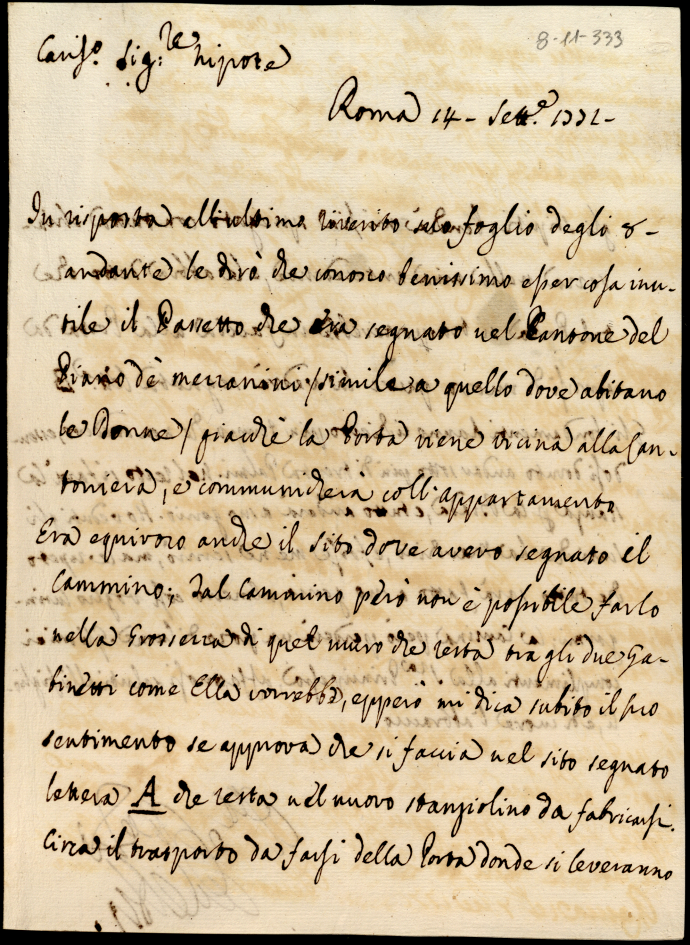 8-11-333
Cariss.o Sig:re Nipote
Roma 14- Sett.e
In risposta all'ultimo riverito suo foglio degli 8-
andante le dirò che conosco benissimo esser cosa inu-
tile il Passetto che era segnato nel Cantone del
Piano de' mezzanini /simile a quello dove abitano
le Donne/ giacchè la Porta viene vicina alla Can-
toniera, e communicherà coll'appartamento
Era equivoco anche il sito dove avevo segnato il
Cammino; Tal Cammino però non è possibile farlo
nella Grossezza di quel muro che resta tra gli due Ga-
binetti come Ella vorrebbe, epperò mi dica subito il suo
sentimento se approva che si faccia nel sito segnato
lettera A che resta nel nuovo stanziolino da fabricarsi.
Circa il trasporto da farsi della Porta donde si leveranno